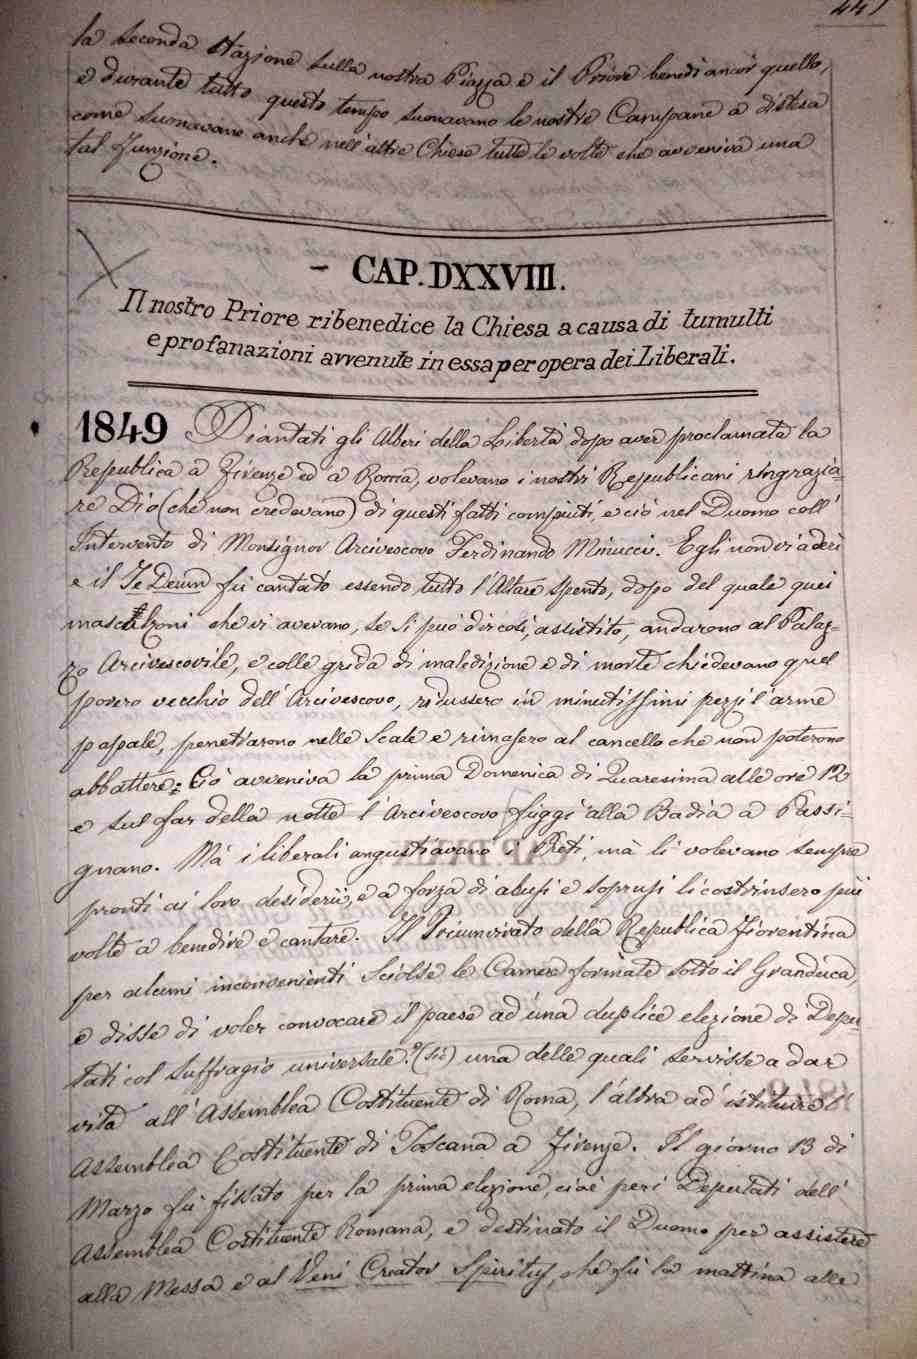 441
la seconda Stazione sulla nostra Piazza e il Priore benedì ancor quello,
e durante tutto questo tempo suonavano le nostre Campane a distesa
come suonavano anche nell'altre Chiese tutte le volte che avveniva una
tal funzione.
- CAP. DXXVIII.
Il nostro Priore ribenedice la Chiesa a causa di tumulti
e profanazioni avvenute in essa per opera dei Liberali.
1849 Piantati gli Alberi della Libertà dopo aver proclamata la
Republica a Firenze ed a Roma, volevano i nostri Republicani ringrazia=
re Dio (che non credevano) di questi fatti compiuti, e ciò nel Duomo coll'
Intervento di Monsignor Arcivescovo Ferdinando Minucci. Egli non vi aderì
e il Te Deum fù cantato essendo tutto l'Altare spento, dopo del quale quei
mascalzoni che vi avevano, se si può dir così, assistito, andarono al Palaz=
zo Arcivescovile, e colle grida di maledizione e di morte chiedevano quel
povero vecchio dell'Arcivescovo, ridussero in minutissimi pezzi l'arme
papale, penetrarono nelle Scale e rimasero al cancello che non poterono
abbattere: Ciò avveniva la prima Domenica di Quaresima alle ore 12
e sul far della notte l'Arcivescovo fuggì alla Badia a Passi=
gnano. Mà i liberali angustiavano i Preti, mà li volevano sempre
pronti ai loro desiderii, e a forza di abusi e soprusi li costrinsero più
volte a benedire e cantare. Il Triumvirato della Republica Fiorentina
per alcuni inconvenienti Sciolse le Camere formate sotto il Granduca,
e disse di voler convocare il paese ad una duplice elezione di Depu
tati col suffragio universale? (sic) una delle quali servisse a dar
vita all'Assemblea Costituente di Roma, l'altra ad istituire l'
Assemblea Costituente di Toscana a Firenze. Il giorno 13 di
Marzo fù fissato per la prima elezione, cioè per i Deputati dell'
Assemblea Costituente Romana, e destinato il Duomo per assistere
alla Messa e al Veni Creator Spiritus, che fù la mattina alle